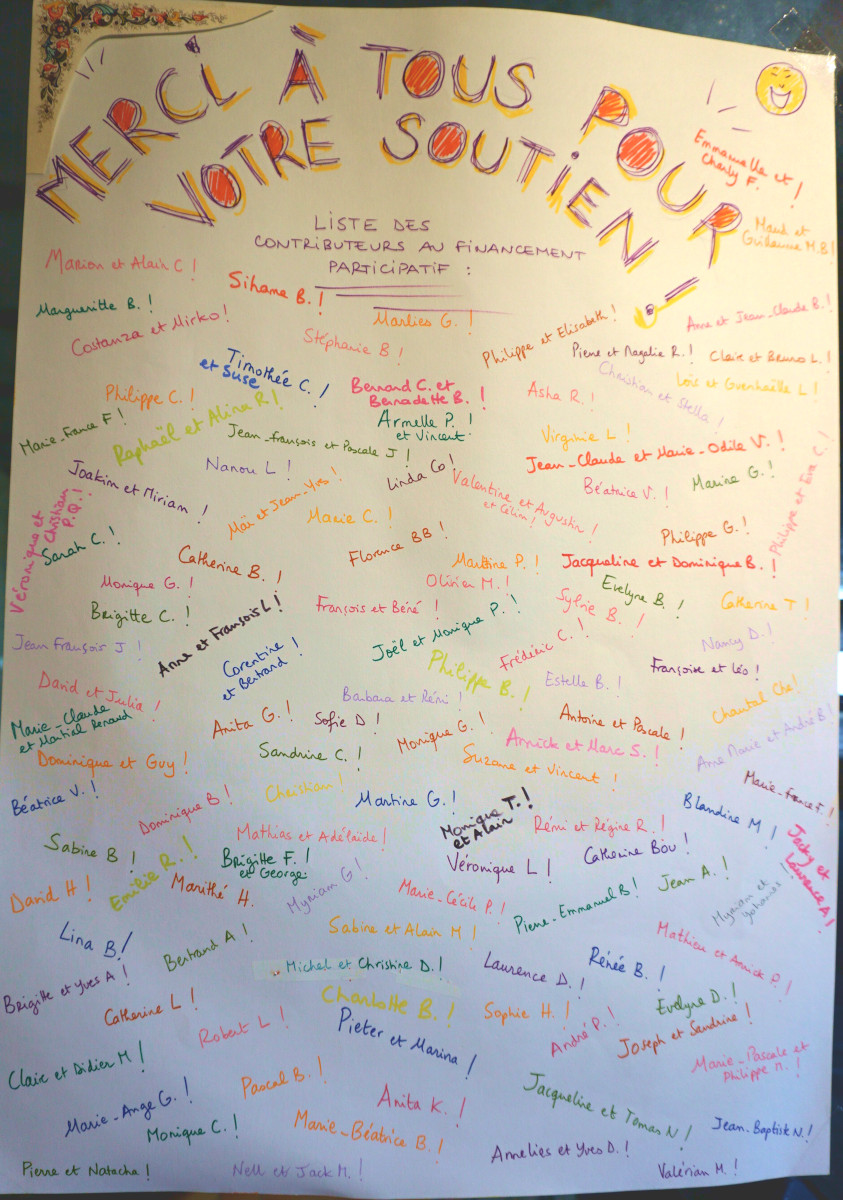 MERCI À TOUS POUR
VOTRE SOUTIEN !
LISTE DES
CONTRIBUTEURS AU FINANCEMENT
PARTICIPATIF :
Emmanuelle et
Charly F. !
Maud et
Guillaume M.B !
Marion et Alain C !
Sihame B. !
Margueritte B. !
Costanza et Mirko !
Marlies G. !
Stéphanie B !
Philippe et Elisabeth !
Anne et Jean-Claude B. !
Pierre et Magalie R. !
Claire et Bruno L. !
Timothée C. !
et Suse
Christian et Stella !
Loïc et Gwenhaëlle L !
Philippe C. !
Bernard C. et
Bernadette B. !
Asha R. !
Marie-France F !
Raphaël et Alina R !
Armelle P. !
et Vincent
Jean-François et Pascale J !
Virginie L !
Jean-Claude et Marie-Odile V. !
Joakim et Miriam !
Nanou L !
Linda Co !
Valentine et Augustin
et Célim ! !
Béatrice V. !
Marine G. !
Philippe et Eva C. !
Véronique et
Christian
P.Q. !
Maï et Jean-Yves !
Marie C. !
Sarah C. !
Catherine B. !
Florence BB !
Philippe G. !
Martine P. !
Jacqueline et Dominique B. !
Monique G. !
Olivier M. !
Evelyne B. !
Brigitte C. !
Anne et François L !
François et Béné !
Sylvie B. !
Catherine T !
Jean François J !
Corentine !
et Bertrand
Joël et Monique P. !
Frédéric C. !
Nancy D. !
Philippe B. !
Estelle B. !
Françoise et Léo !
David et Julia !
Barbara et Rémi !
Chantal Che !
Marie-Claude
et Martial Renaud
Anita G. !
Sofie D !
Antoine et Pascale !
Monique G. !
Annick et Marc S. !
Anne Marie et André B !
Dominique et Guy !
Sandrine C. !
Suzane et Vincent !
Béatrice V. !
Christian !
Marie-France F. !
Dominique B !
Martine G. !
Monique T. !
et Alain
Blandine M !
Mathias et Adélaïde !
Rémi et Régine R. !
Jacky et
Laurence A !
Sabine B !
Emilie R. !
Brigitte F. !
et George
Véronique L !
Catherine Bou !
David H !
Marithé H.
Myriam G !
Marie-Cécile P. !
Pierre-Emmanuel B !
Jean A. !
Myriam et
Yohannes !
Lina B !
Bertrand A !
Sabine et Alain M !
Mathieu et Annick P. !
Brigitte et Yves A !
Michel et Christine D. !
Laurence D. !
Rénée B. !
Catherine L !
Charlotte B. !
Sophie H. !
Evelyne D. !
Robert L !
Pieter et Marina !
André P. !
Joseph et Sandrine !
Claire et Didier M !
Marie-Pascale et
Philippe M. !
Marie-Ange G. !
Pascal B. !
Anita K. !
Jacqueline et Tomas N !
Monique C. !
Marie-Béatrice B. !
Jean-Baptiste N. !
Pierre et Natacha !
Nell et Jack M. !
Annelies et Yves D. !
Valérian M. !